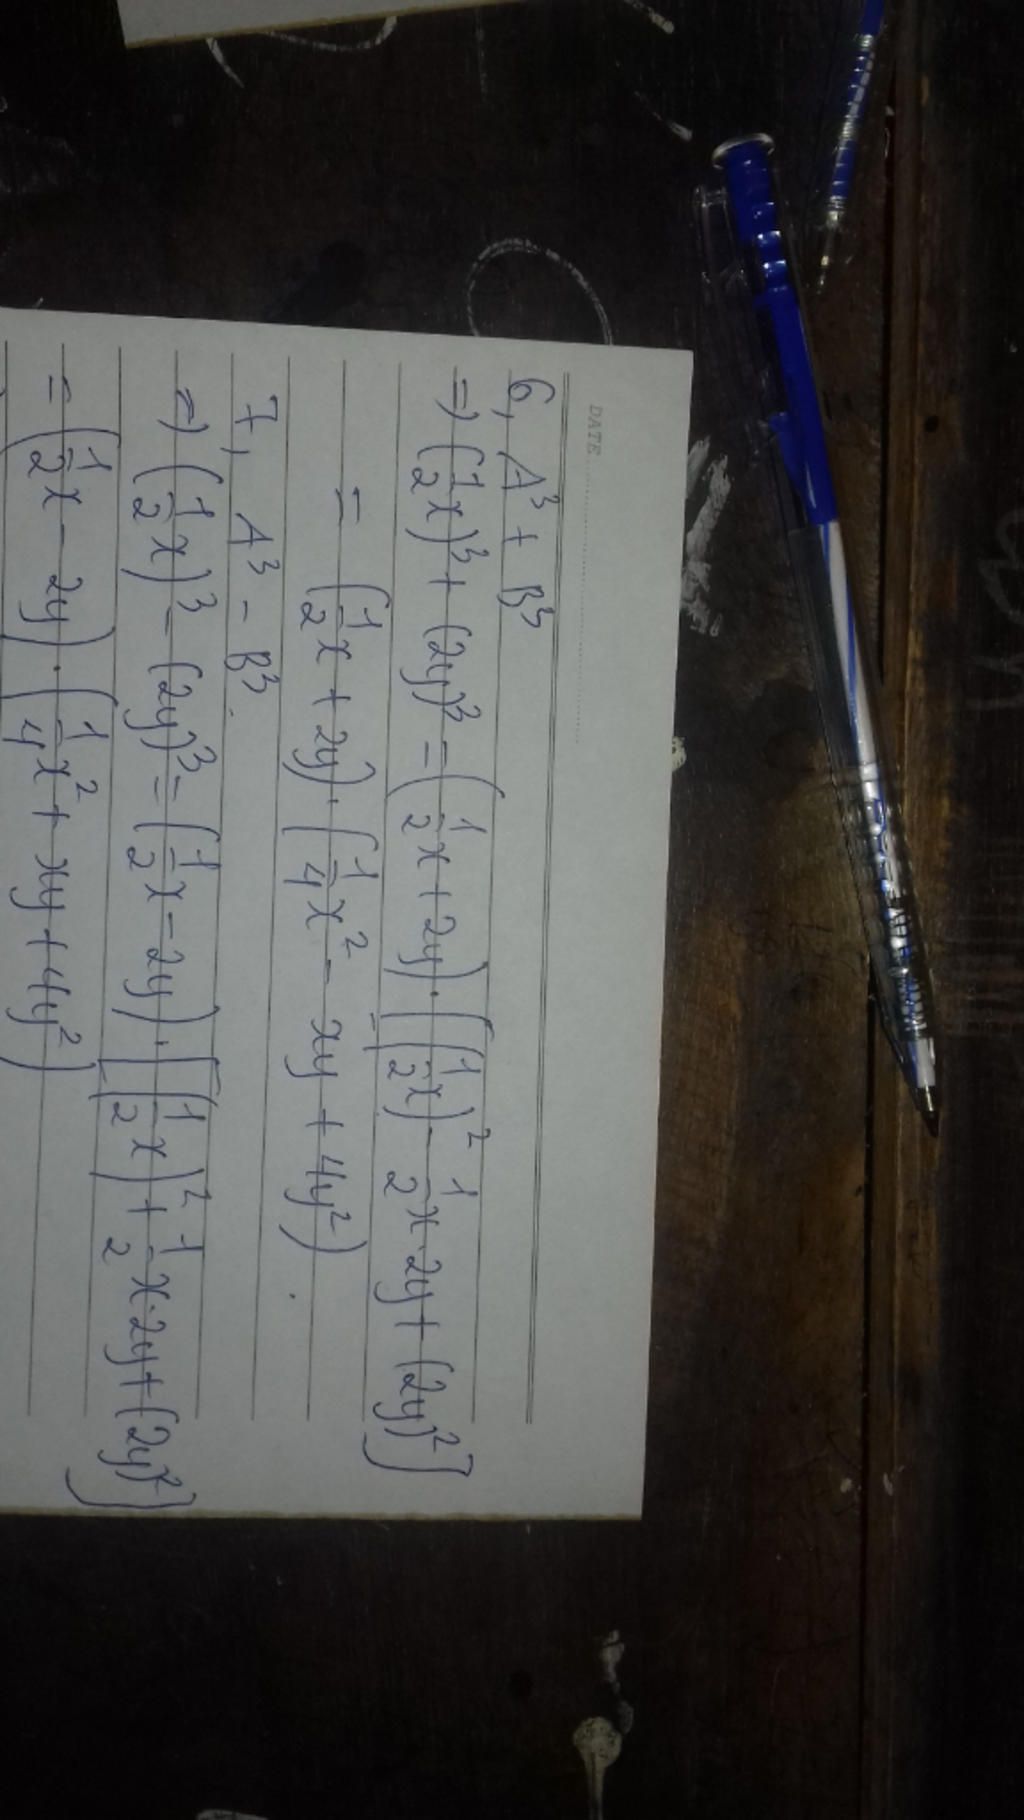 DATE
6, A³ + B³
=> (1/2 x)³ + (2y)³ = (1/2 x + 2y) . [(1/2 x)² - 1/2 x . 2y + (2y)²]
= (1/2 x + 2y) . (1/4 x² - xy + 4y²) .
7, A³ - B³.
=> (1/2 x)³ - (2y)³ = (1/2 x - 2y) . [(1/2 x)² + 1/2 x . 2y + (2y)²]
= (1/2 x - 2y) . (1/4 x² + xy + 4y²)